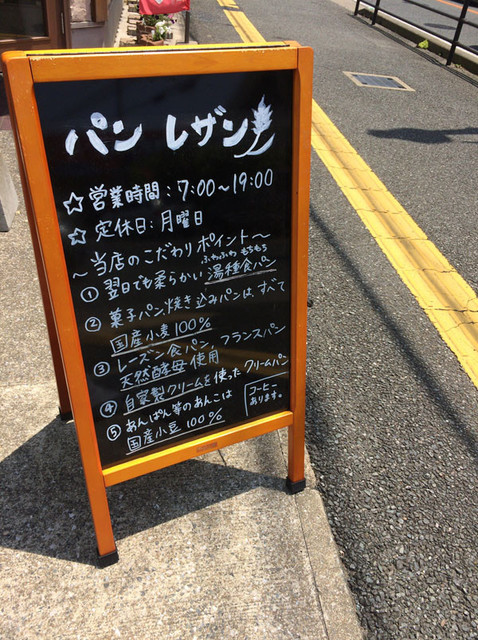 パン レザン
☆営業時間:7:00~19:00
☆定休日:月曜日
~当店のこだわりポイント~
ふわふわ もちもち
① 翌日でも柔らかい 湯種食パン
② 菓子パン・焼き込みパンは、すべて
国産小麦100%
③ レーズン食パン, フランスパン
天然酵母使用
④ 自家製クリームを使ったクリームパン
⑤ あんぱん等のあんこは
国産小豆100%
コーヒー
あります。